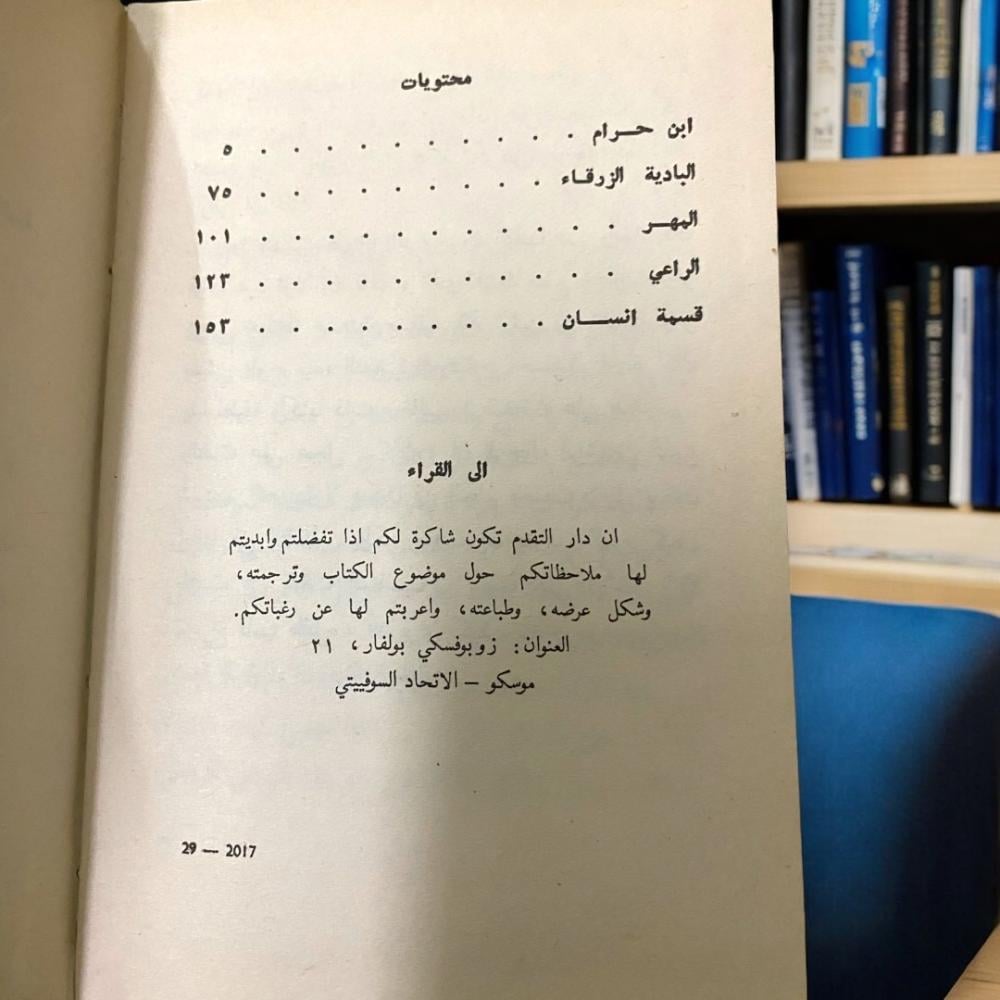 محتويات
ابن حـــرام . . . . . . . . . . ٥
البادية الزرقاء . . . . . . . . . ٧٥
المهـــر . . . . . . . . . . . . ١٠١
الراعي . . . . . . . . . . . ١٢٣
قسمة انســـان . . . . . . . . . ١٥٣
الى القراء
ان دار التقدم تكون شاكرة لكم اذا تفضلتم وابديتم
لها ملاحظاتكم حول موضوع الكتاب وترجمته،
وشكل عرضه، وطباعته، واعربتم لها عن رغباتكم.
العنوان: زوبوفسكي بولفار، ٢١
موسكو – الاتحاد السوفييتي
29 — 2017